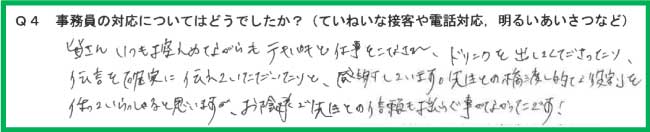 Q4 事務員の対応についてはどうでしたか?(ていねいな接客や電話対応,明るいあいさつなど)
皆さん いつも控えめながらも テキパキと仕事をこなされ、ドリンクを出してくださったり、
伝言を確実に伝えていただいたりと、感謝しています。先生との橋渡し的な役割を
担っていらっしゃると思いますが、お陰様で先生との信頼も揺らぐ事がなかったです!